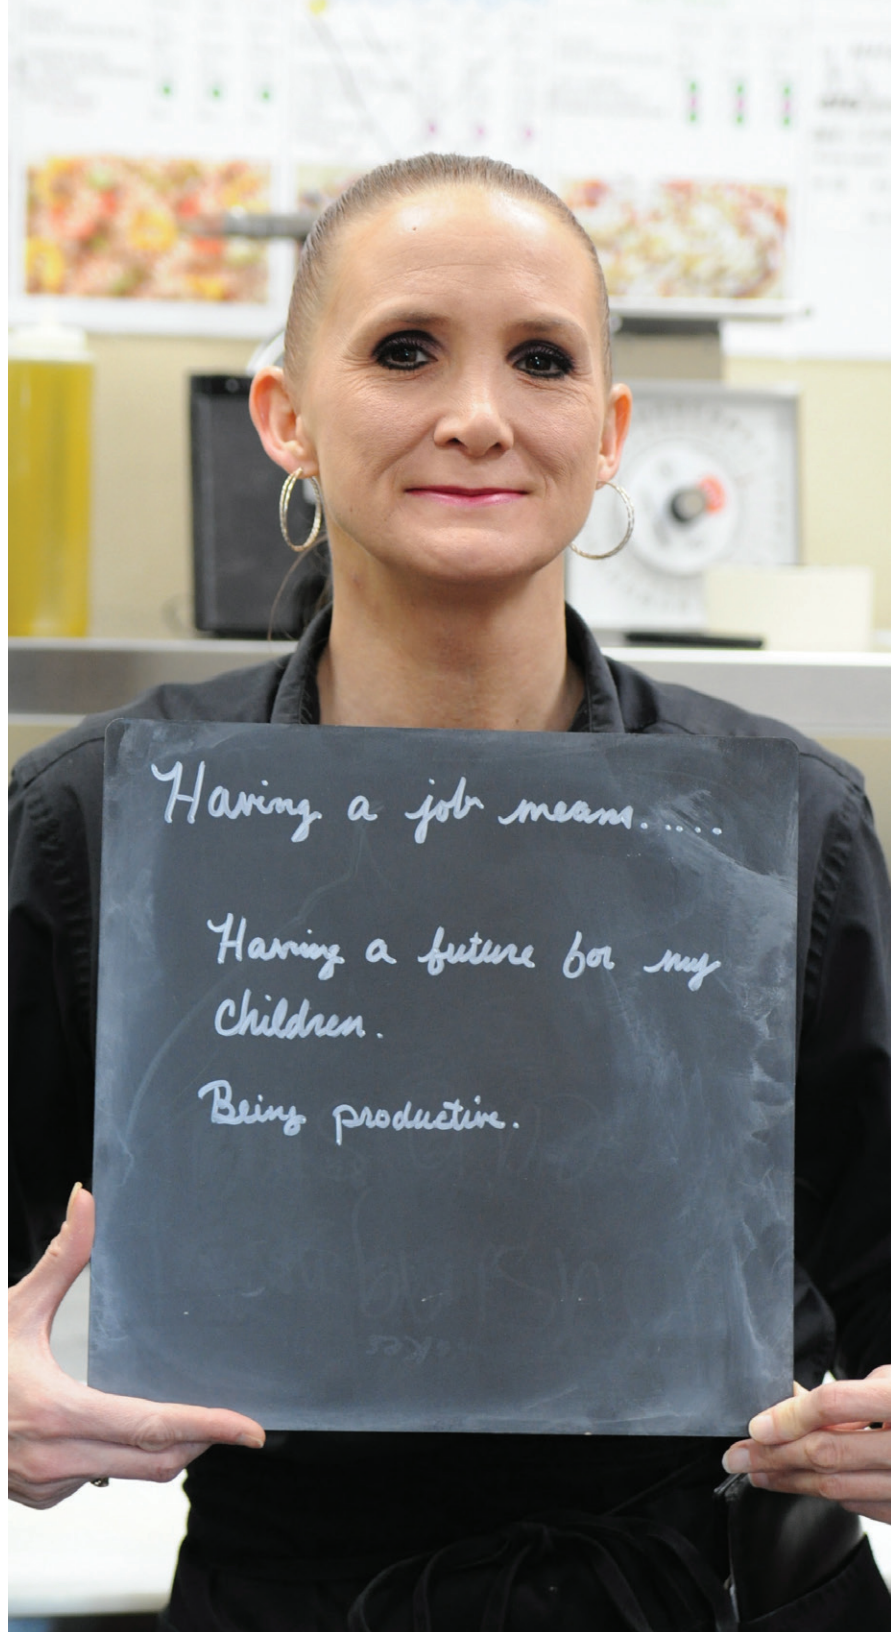 Having a job means.....
Having a future for my
Children.
Being productive.